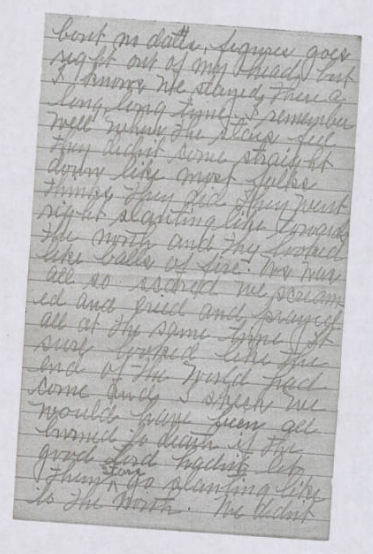 bout no datts, figures goes
right out of my head, but
I knows we stayed there a
long long time. I remember
well when the stars fell
They didn't come straight
down like most folks
thinks they did They went
right slanting like towards
the north and they looked
like balls of fire. We was
all so scared we scream
ed and cried and prayed
all at the same time It
sure looked like the
end of the World had
come Lawdy I speck we
would have been all
burned to death if the
good Lord hadn't let
them go slanting like
to the North. We didnt